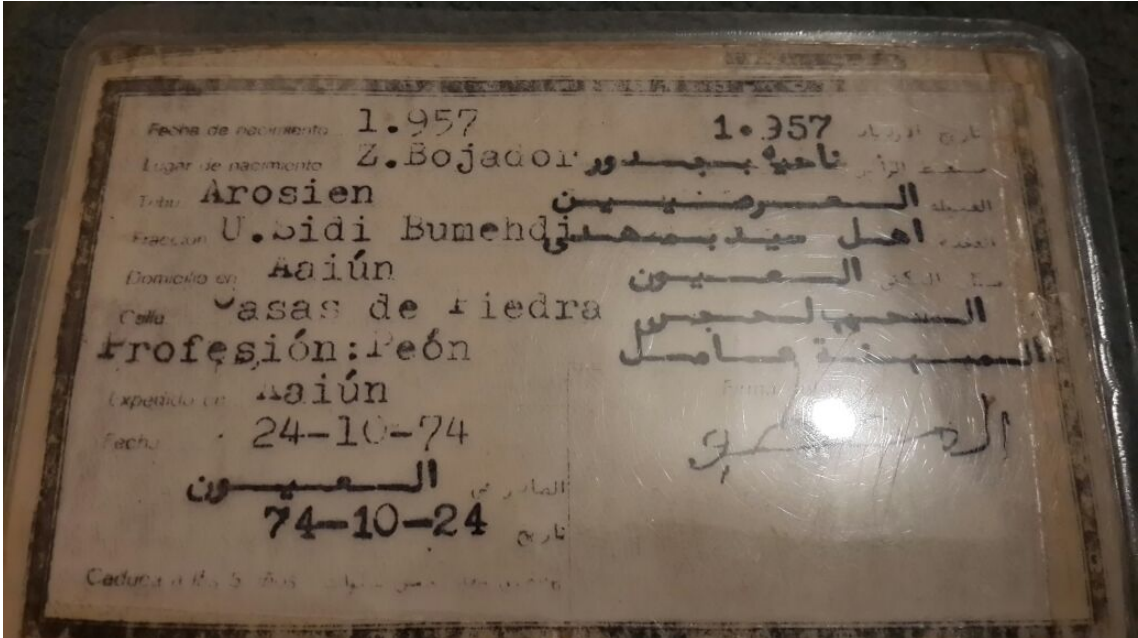 Fecha de nacimiento 1.957 1.957 تاريخ الازدياد
Lugar de nacimiento Z.Bojador ناحية بـجـدور مسقط الرأس
Tribu Arosien العـروسيـيـن القبيلة
Fracción U.Sidi Bumehdi اهـل سيـد بـمـهـدي الفخذ
Domicilio en Aaiún الـعـيـون السكنى
Calle Casas de Piedra
Profesión:Peón الـمـهـنـة عـامـل
Expedido en Aaiún Firma
Fecha 24-10-74
الـعـيـون الصادر في
74-10-24 تاريخ
Caduca a los 5 años